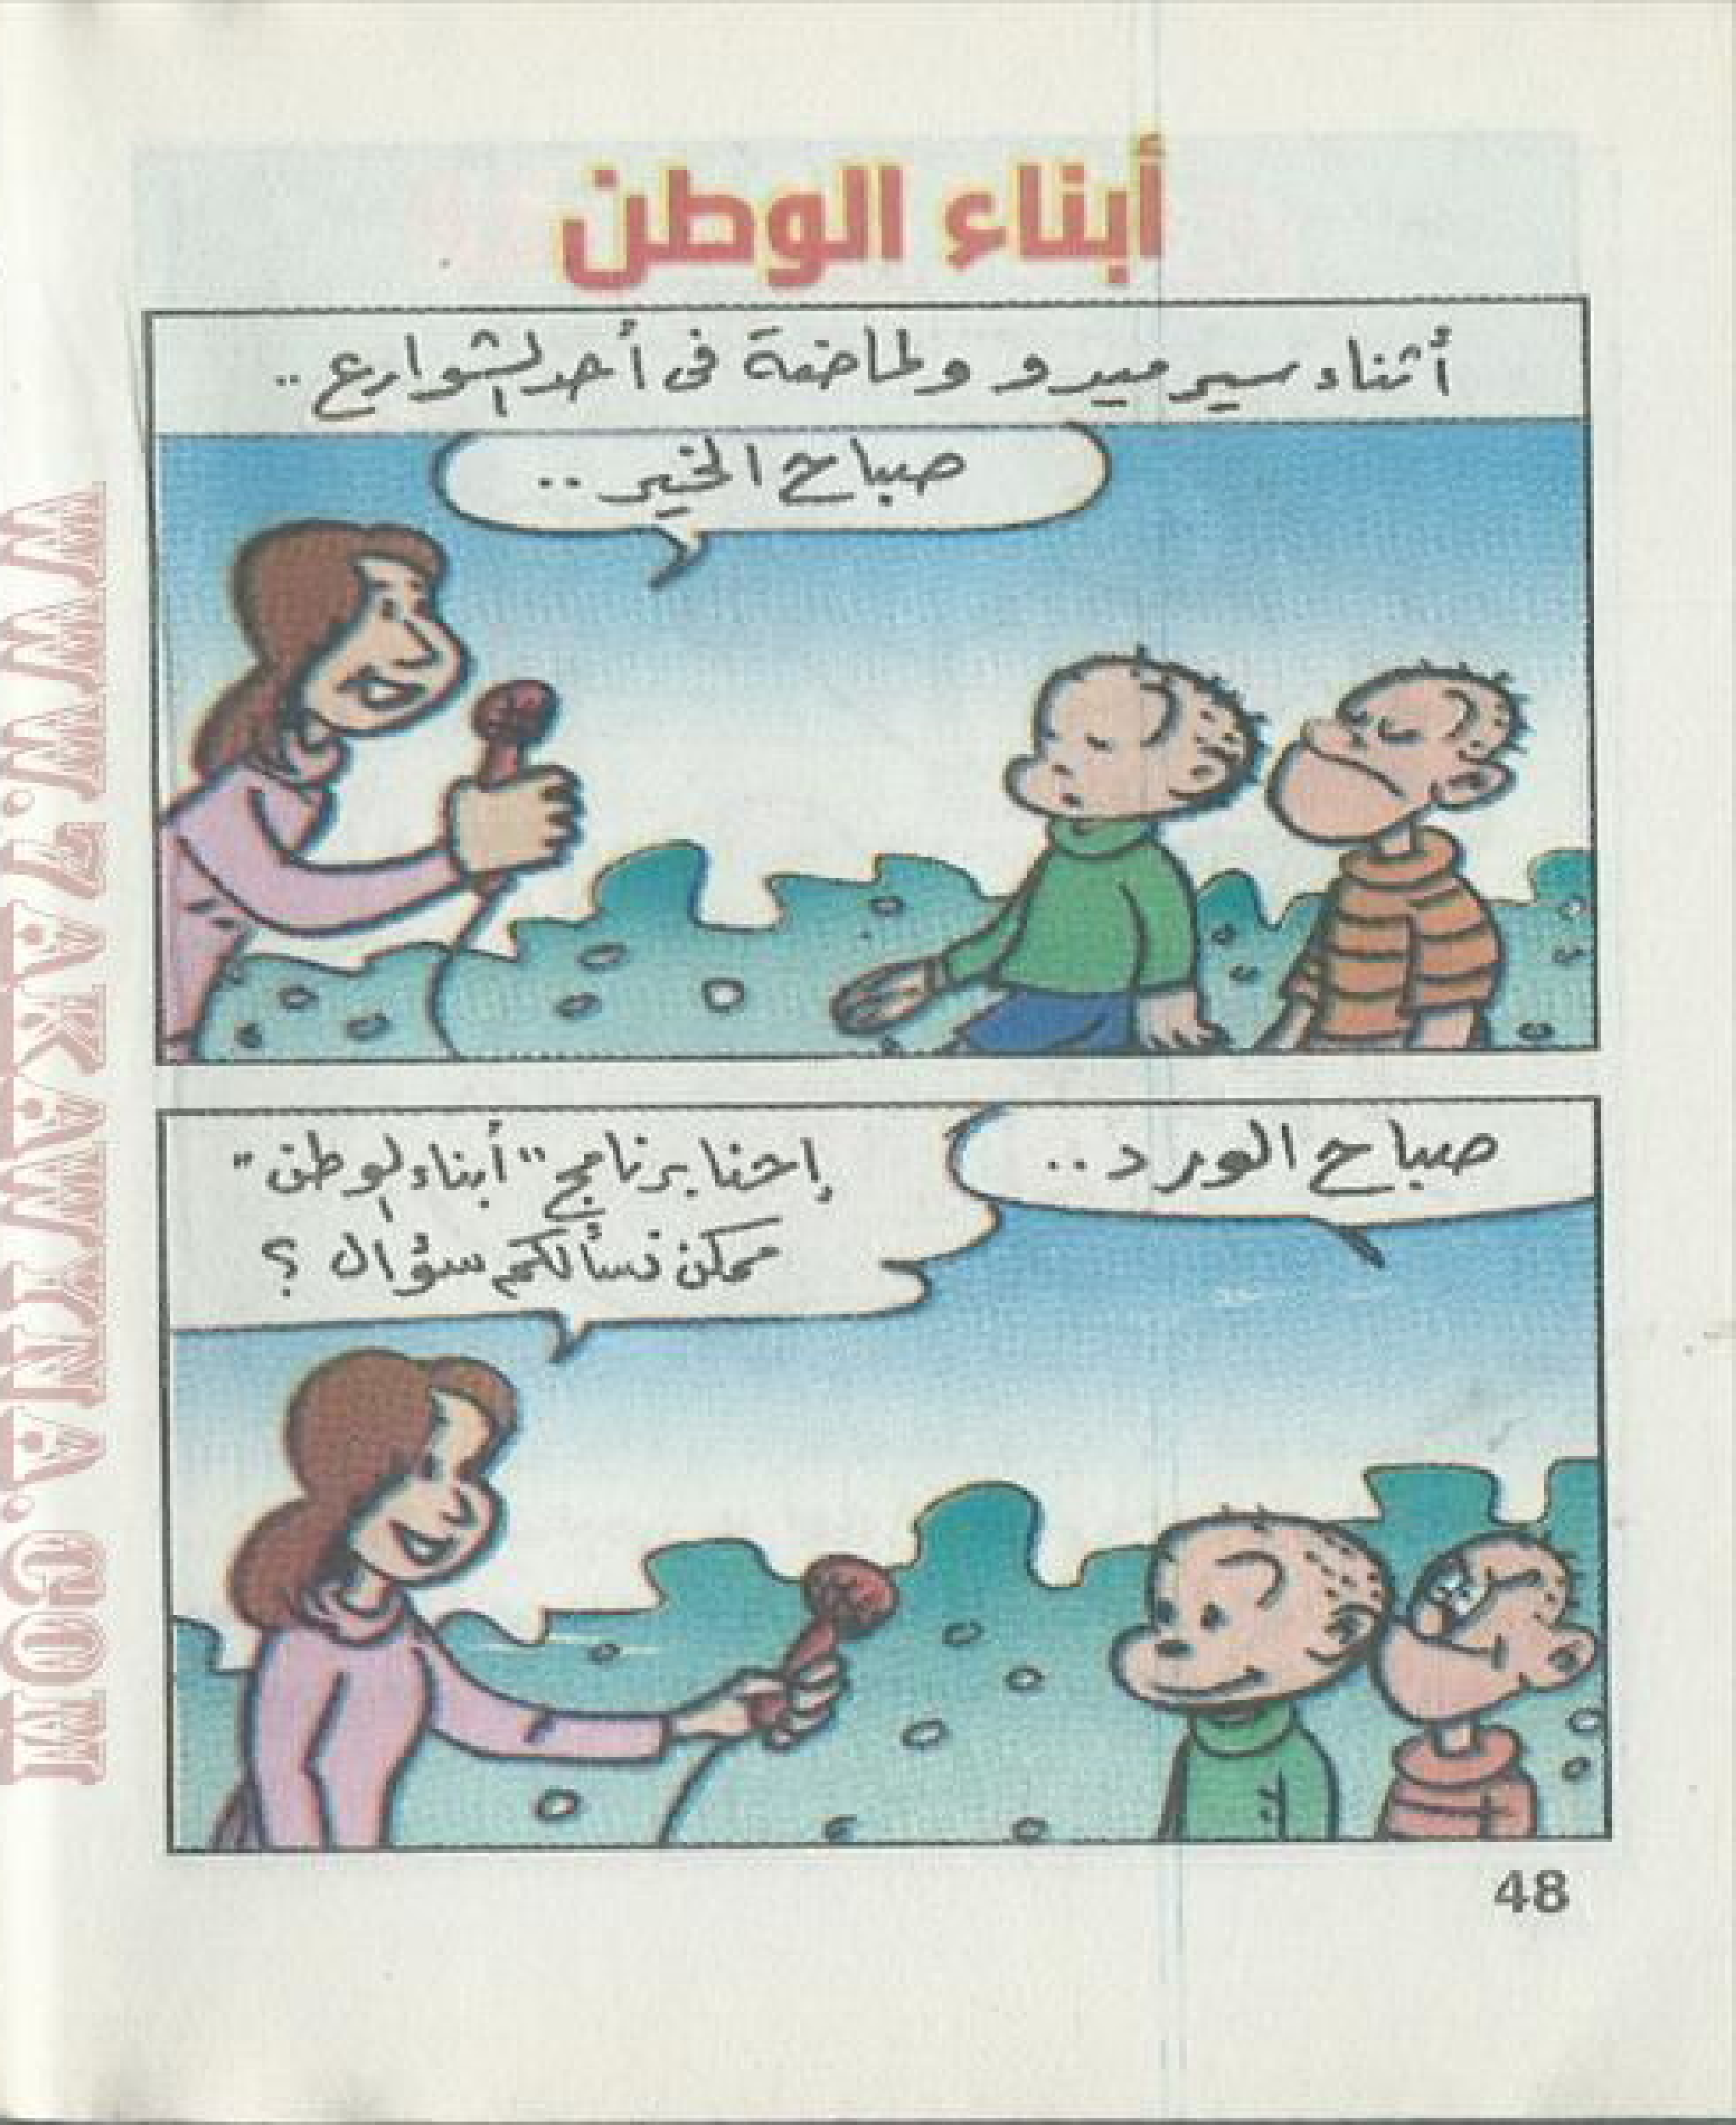 أبناء الوطن
أثناء سير ميدو ولماضة فى أحد الشوارع ..
صباح الخير ..
صباح الورد ..
إحنا برنامج "أبناء الوطن"
ممكن نسألكم سؤال ؟
48
WWW.7AKAWINA.COM